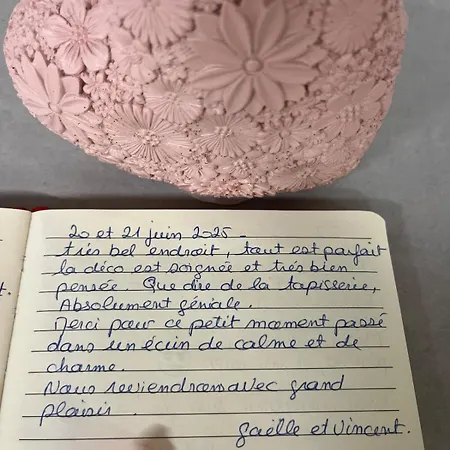 20 et 21 juin 2025 -
très bel endroit, tout est parfait
la déco est soignée et très bien
pensée. Que dire de la tapisserie,
Absolument géniale.
Merci pour ce petit moment passé
dans un écrin de calme et de
charme.
Nous reviendrons avec grand
plaisir.
Gaëlle et Vincent.
t.